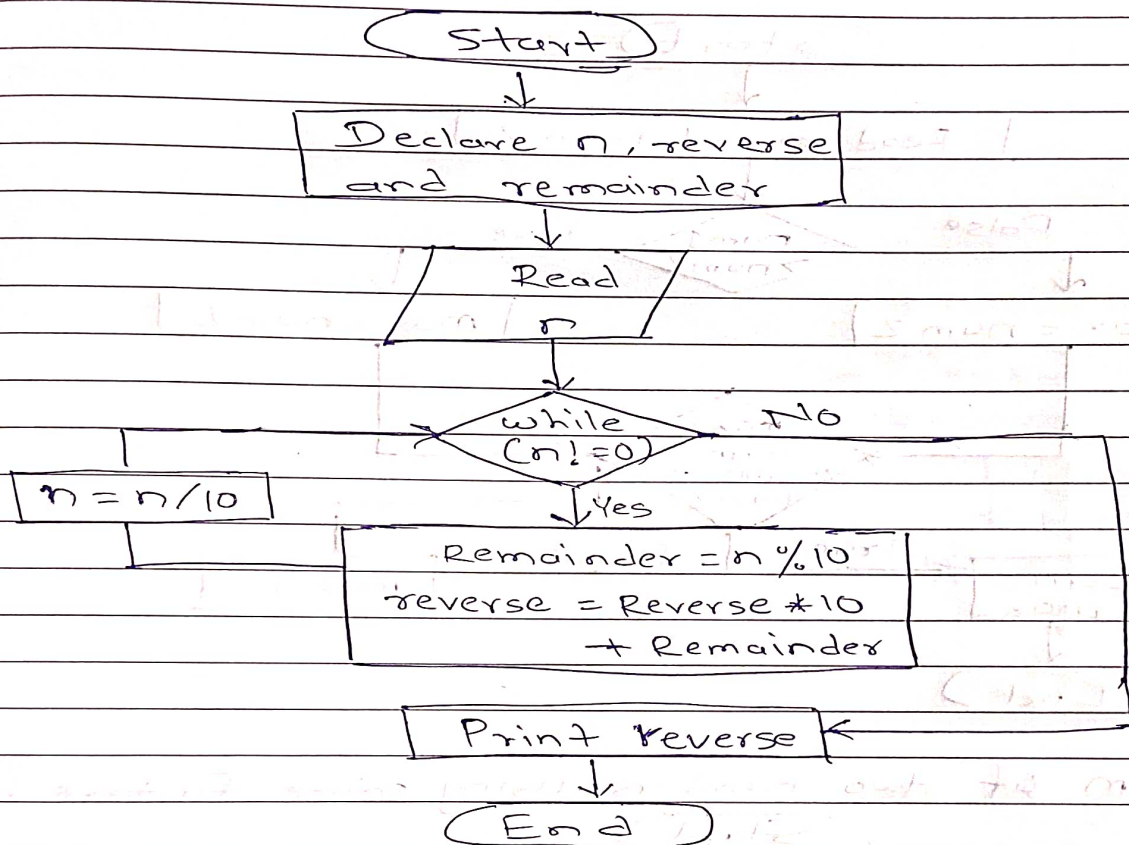 Start
Declare n, reverse
and remainder
Read
n
while
(n!=0)
No
n=n/10
Yes
Remainder = n%10
reverse = Reverse *10
+ Remainder
Print reverse
End